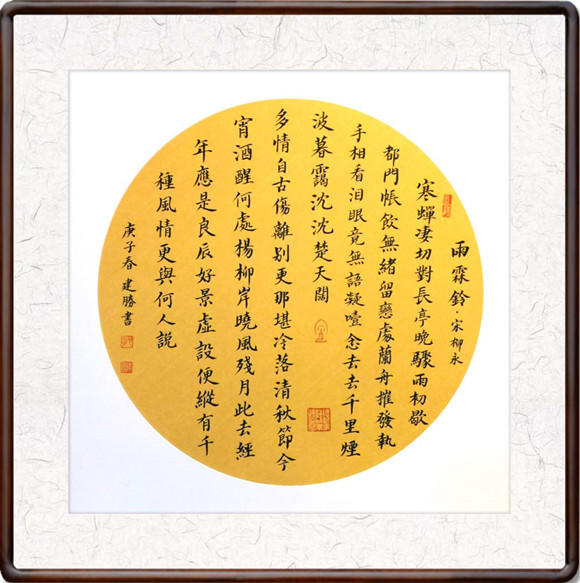 雨霖鈴·宋柳永
寒蟬凄切對長亭晚驟雨初歇
都門帳飲無緒留戀處蘭舟摧發執
手相看泪眼竟無語凝噎念去去千里煙
波暮靄沈沈楚天闊
多情自古傷離别更那堪冷落清秋節今
宵酒醒何處楊柳岸曉風殘月此去經
年應是良辰好景虛設便縱有千
種風情更與何人説
庚子春建勝書